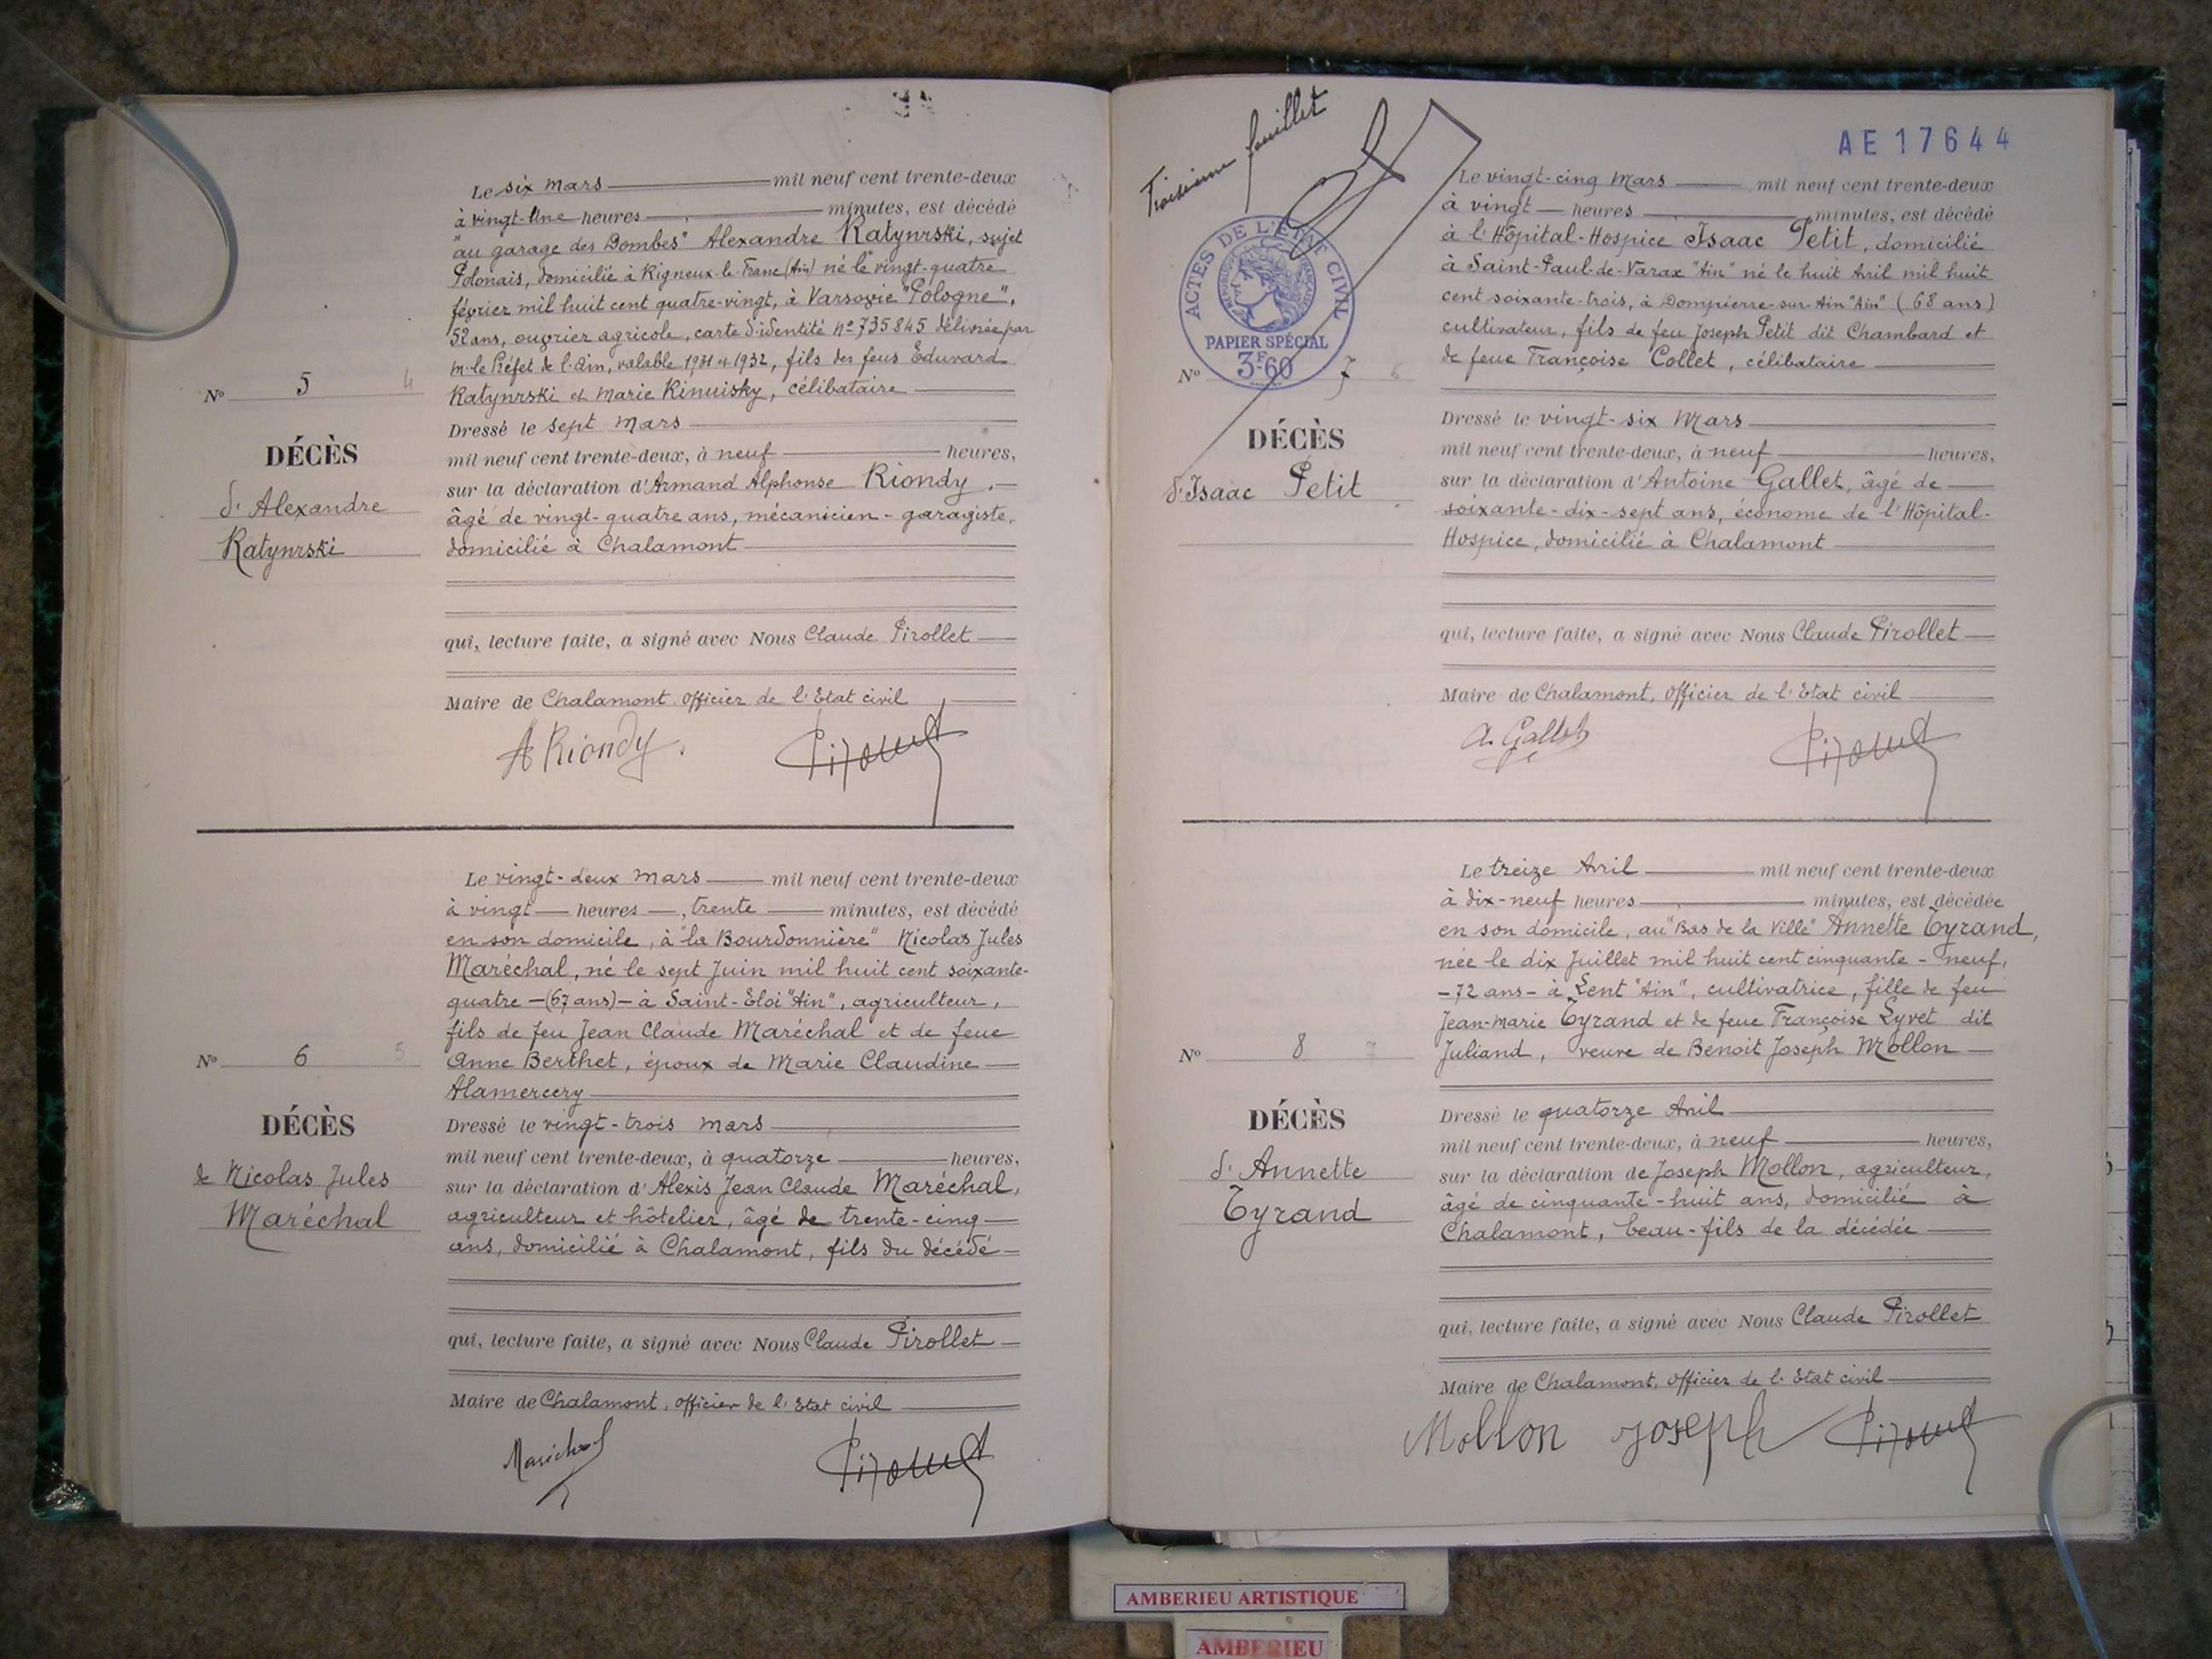 Le six mars mil neuf cent trente-deux
à vingt-une heures minutes, est décédé
"au garage des Dombes" Alexandre Katynrski, sujet
Polonais, domicilié à Rigneux-le-Franc (Ain) né le vingt-quatre
février mil huit cent quatre-vingt, à Varsovie "Pologne",
52 ans, ouvrier agricole, carte d'identité No 735845 délivrée par
M. le Préfet de l'Ain, valable 1931 et 1932, fils des feus Eduvard
Katynrski et Marie Kinuisky, célibataire
No 5 4
DÉCÈS
d'Alexandre
Katynrski
Dressé le sept mars
mil neuf cent trente-deux, à neuf heures,
sur la déclaration d'Armand Alphonse Riondy,
âgé de vingt-quatre ans, mécanicien-garagiste,
domicilié à Chalamont
qui, lecture faite, a signé avec Nous Claude Pirollet
Maire de Chalamont officier de l'Etat civil
A Riondy.
Le vingt-deux mars mil neuf cent trente-deux
à vingt heures, trente minutes, est décédé
en son domicile, à "la Bourdonnière" Nicolas Jules
Maréchal, né le sept Juin mil huit cent soixante-
quatre -(67 ans)- à Saint-Eloi "Ain", agriculteur,
fils de feu Jean Claude Maréchal et de feue
Anne Berthet, époux de Marie Claudine
Alamercery
No 6 5
DÉCÈS
de Nicolas Jules
Maréchal
Dressé le vingt-trois mars
mil neuf cent trente-deux, à quatorze heures,
sur la déclaration d'Alexis Jean Claude Maréchal,
agriculteur et hôtelier, âgé de trente-cinq
ans, domicilié à Chalamont, fils du décédé
qui, lecture faite, a signé avec Nous Claude Pirollet
Maire de Chalamont, officier de l'Etat civil
Maréchal
Troisième feuillet
AE 17644
ACTES DE L'ÉTAT CIVIL
RÉPUBLIQUE FRANÇAISE
PAPIER SPÉCIAL
3F60
Le vingt-cinq Mars mil neuf cent trente-deux
à vingt heures minutes, est décédé
à l'Hôpital-Hospice Isaac Petit, domicilié
à Saint-Paul-de-Varax "Ain" né le huit Avril mil huit
cent soixante-trois, à Dompierre-sur-Ain "Ain" (68 ans)
cultivateur, fils de feu Joseph Petit dit Chambard et
de feue Françoise Collet, célibataire
No 7 6
DÉCÈS
d'Isaac Petit
Dressé le vingt-six Mars
mil neuf cent trente-deux, à neuf heures,
sur la déclaration d'Antoine Gallet, âgé de
soixante-dix-sept ans, économe de l'Hôpital-
Hospice, domicilié à Chalamont
qui, lecture faite, a signé avec Nous Claude Pirollet
Maire de Chalamont, officier de l'Etat civil
A. Gallet
Le treize Avril mil neuf cent trente-deux
à dix-neuf heures minutes, est décédée
en son domicile, au "Bas de la Ville" Annette Tyrand,
née le dix Juillet mil huit cent cinquante-neuf,
-72 ans- à Lent "Ain", cultivatrice, fille de feu
Jean-Marie Tyrand et de feue Françoise Lyvet dit
Juliand, veuve de Benoit Joseph Mollon
No 8 7
DÉCÈS
d'Annette
Tyrand
Dressé le quatorze Avril
mil neuf cent trente-deux, à neuf heures,
sur la déclaration de Joseph Mollon, agriculteur,
âgé de cinquante-huit ans, domicilié à
Chalamont, beau-fils de la décédée
qui, lecture faite, a signé avec Nous Claude Pirollet
Maire de Chalamont, officier de l'Etat civil
Mollon Joseph
AMBERIEU ARTISTIQUE
AMBERIEU